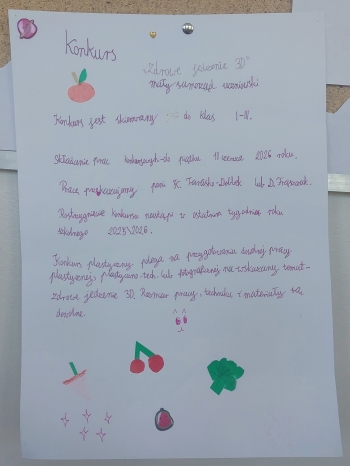 Konkurs
"Zdrowe jedzenie 3D"
mały samorząd uczniowski
Konkurs jest skierowany do klas I-IV.
Składanie prac konkursowych do piątku 11 czerwca 2026 roku.
Prace przekazujemy pani K. lub D.
Rozstrzygnięcie konkursu nastąpi w ostatnim tygodniu roku
szkolnego 2025\2026.
Konkurs plastyczny polega na przygotowaniu dowolnej pracy
plastycznej, plastyczno-tech. lub fotograficznej na wskazany temat-
zdrowe jedzenie 3D. Rozmiar pracy, technika i materiały są
dowolne.